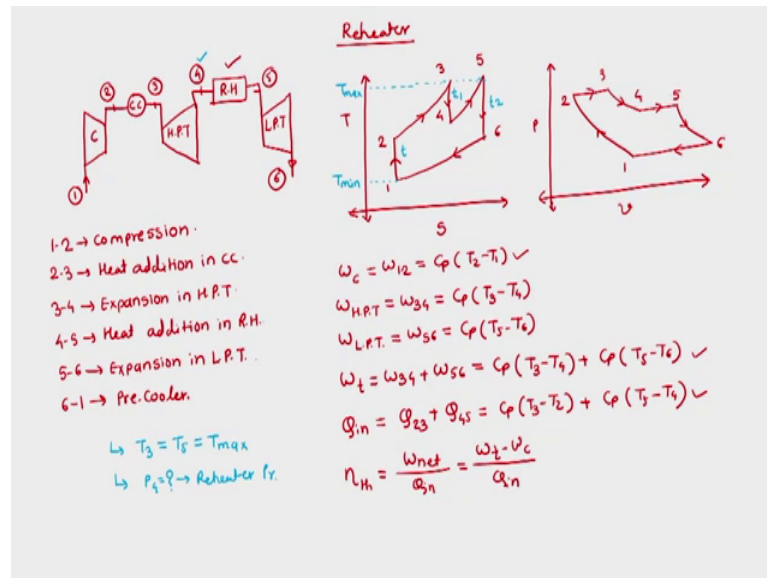 Reheater
① C ② CC ③ H.P.T ④ R.H ⑤ L.P.T ⑥
Tmax
T
Tmin
1 2 3 4 5 6
t t1 t2
S
P
1 2 3 4 5 6
v
1-2 → Compression.
2-3 → Heat addition in CC.
3-4 → Expansion in H.P.T.
4-5 → Heat addition in R.H.
5-6 → Expansion in L.P.T.
6-1 → Pre.Cooler.
↳ T3 = T5 = Tmax
↳ P4 = ? → Reheater Pr.
ωc = ω12 = Cp(T2-T1) ✓
ωH.P.T = ω34 = Cp(T3-T4)
ωL.P.T. = ω56 = Cp(T5-T6)
ωt = ω34 + ω56 = Cp(T3-T4) + Cp(T5-T6) ✓
Qin = Q23 + Q45 = Cp(T3-T2) + Cp(T5-T4) ✓
ηth = ωnet/Qin = (ωt-ωc)/Qin